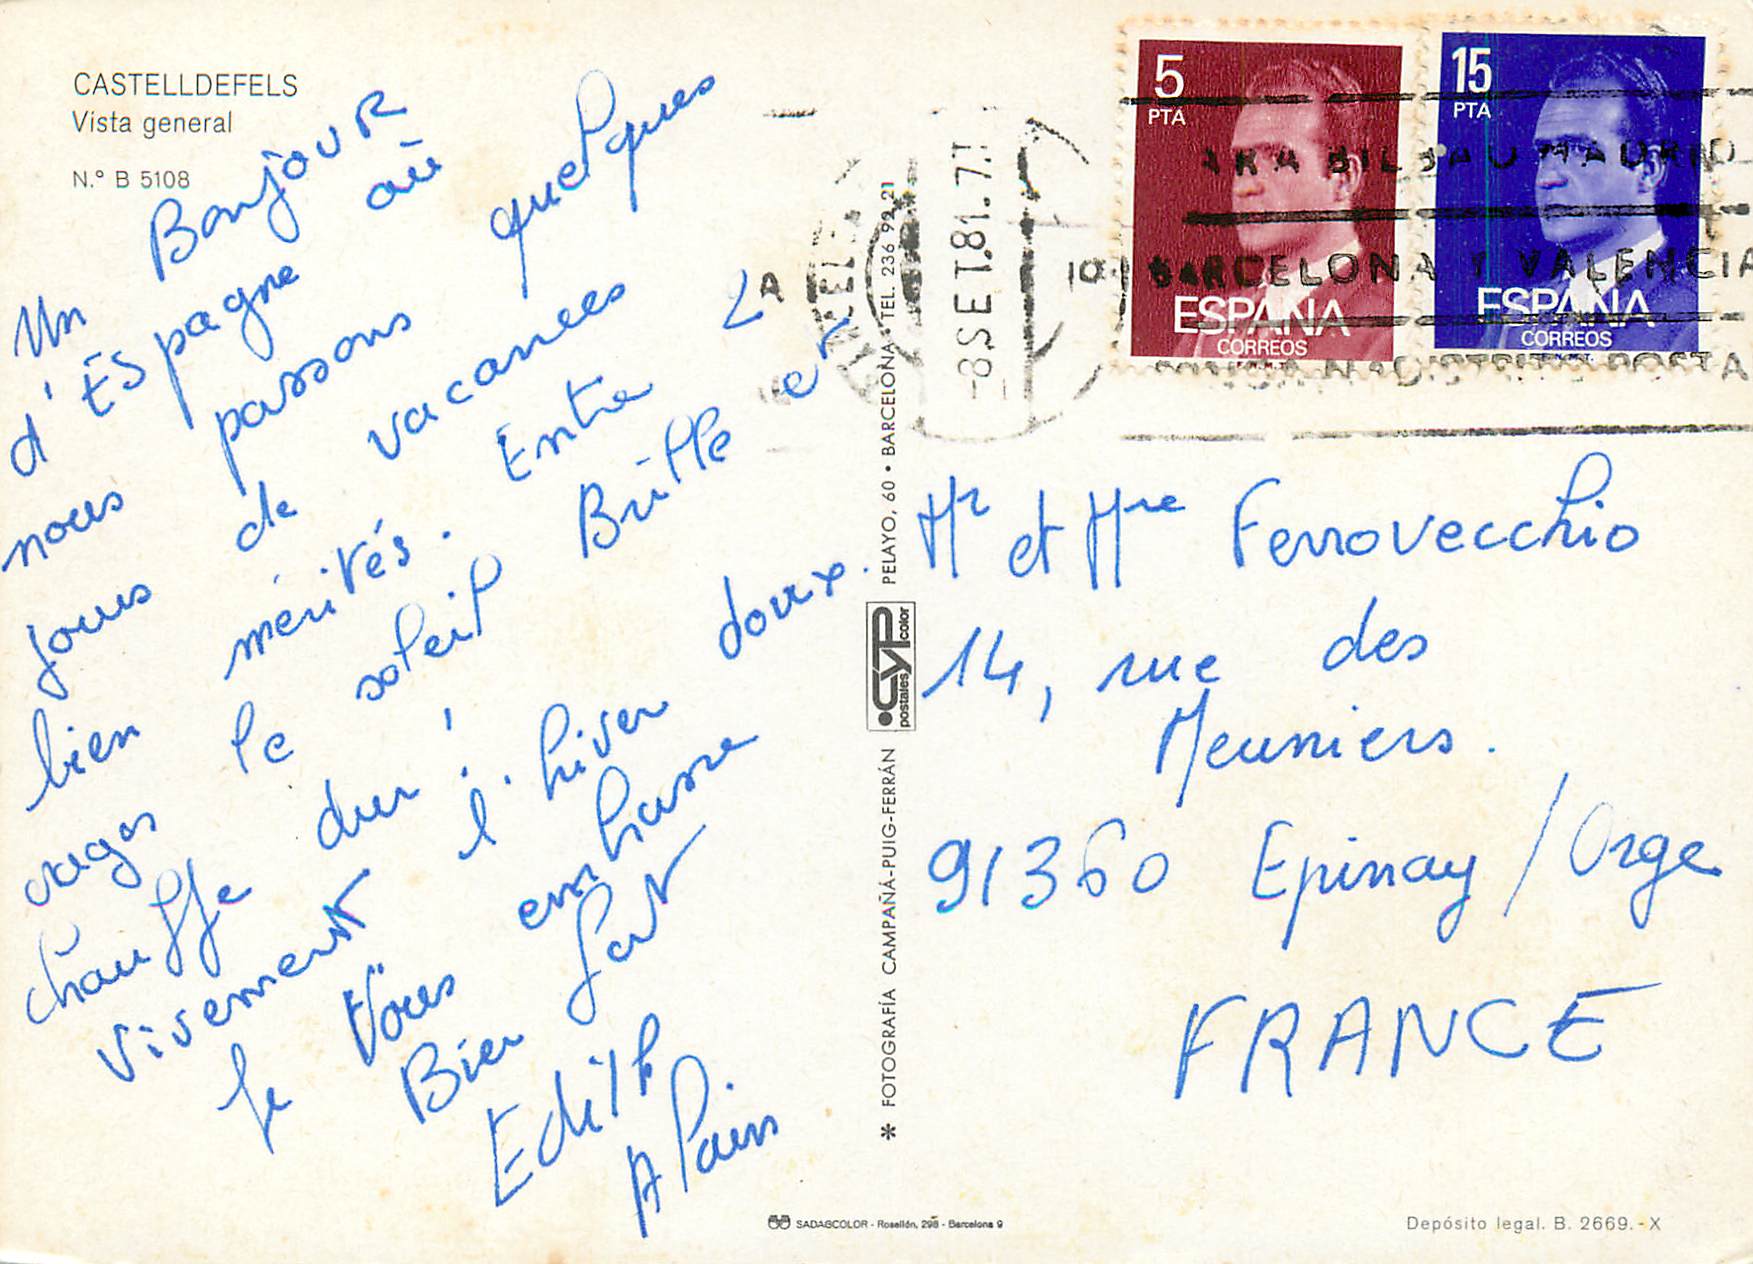 CASTELLDEFELS
Vista general
N.° B 5108
Un Bonjour
d'Espagne où
nous passons quelques
jours de vacances
bien mérités. Entre 2
orages le soleil Brille et
chauffe dur !
Vivement l'hiver doux.
Je Vous embrasse
Bien fort
Edith
Alain
5
PTA
ESPAÑA
CORREOS
15
PTA
ESPAÑA
CORREOS
-8 SET.81.7.T
BILBAO MADRID
BARCELONA Y VALENCIA
DISTRITO POSTA
Mr et Mme Ferrovecchio
14, rue des
Meuniers.
91360 Epinay / Orge
FRANCE
* FOTOGRAFÍA CAMPAÑÁ-PUIG-FERRÁN
CYP
postales color
PELAYO, 60 • BARCELONA • TEL. 236 99 21
SADAGCOLOR - Rosellón, 298 - Barcelona 9
Depósito legal. B. 2669.-X